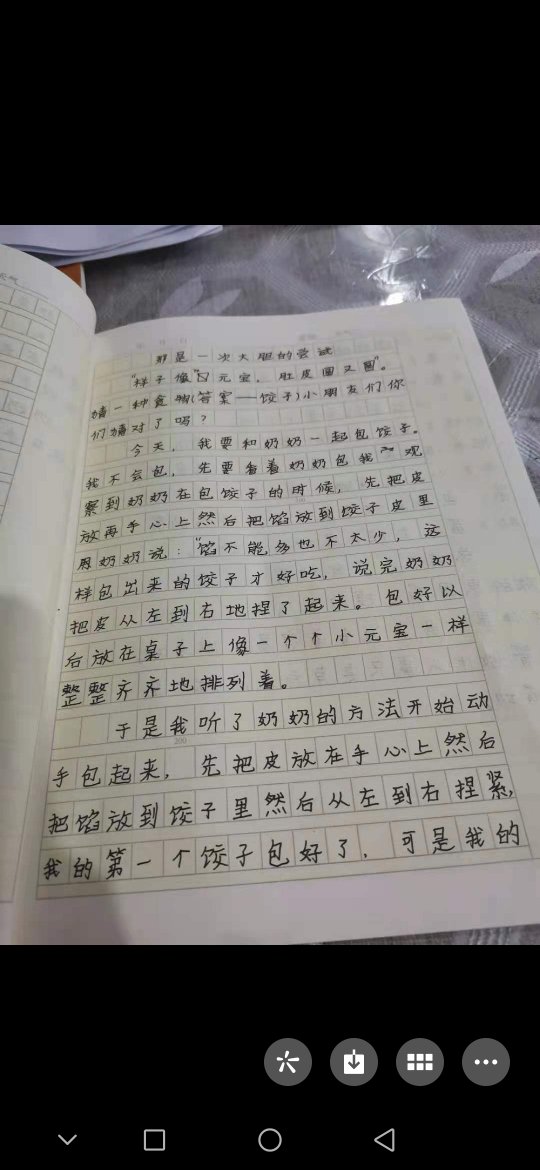 那是一次大胆的尝试
"样子像元宝，肚皮圆又圆"。
猜一种食物(答案——饺子)小朋友们你
们猜对了吗？
今天，我要和奶奶一起包饺子。
我不会包，先要看着奶奶包我观
察到奶奶在包饺子的时候，先把皮
放再手心上然后把馅放到饺子皮里
奶奶说："馅不能多也不太少，这
样包出来的饺子才好吃，说完奶奶
把皮从左到右地捏了起来。包好以
后放在桌子上像一个个小元宝一样
整整齐齐地排列着。
于是我听了奶奶的方法开始动
手包起来，先把皮放在手心上然后
200
把馅放到饺子里然后从左到右捏紧，
我的第一个饺子包好了，可是我的